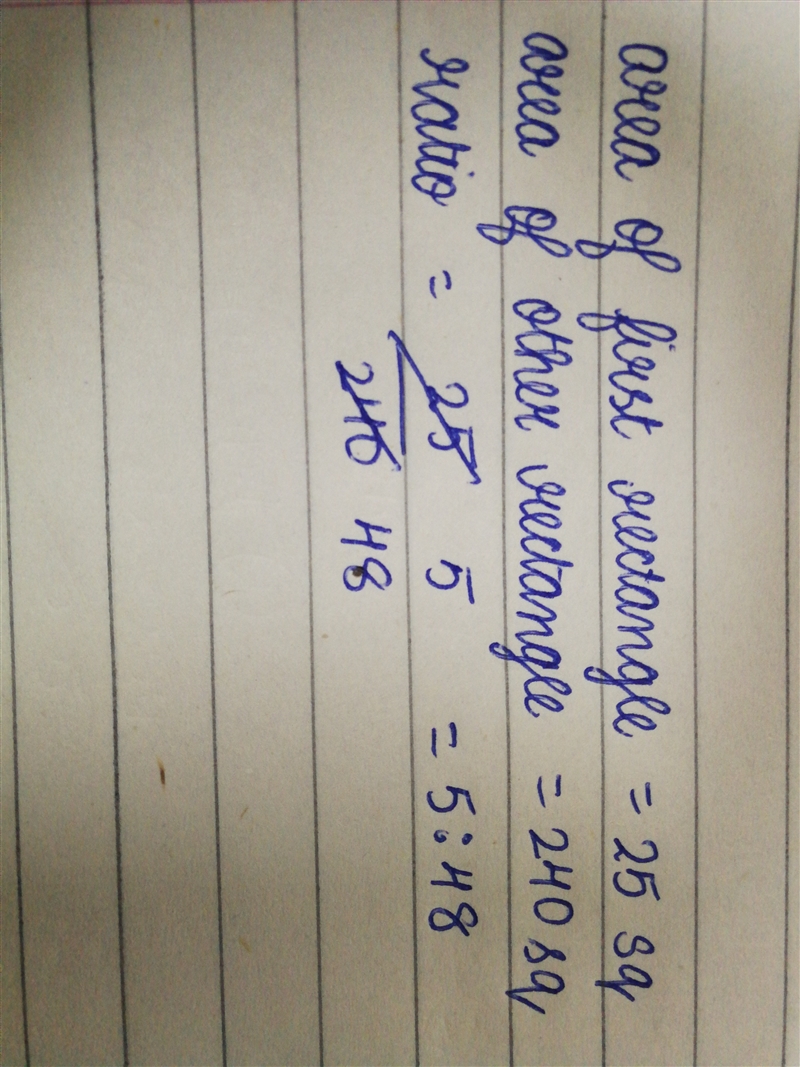 area of first rectangle = 25 sq
area of other rectangle = 240 sq
ratio = 25 5 = 5:48
240 48